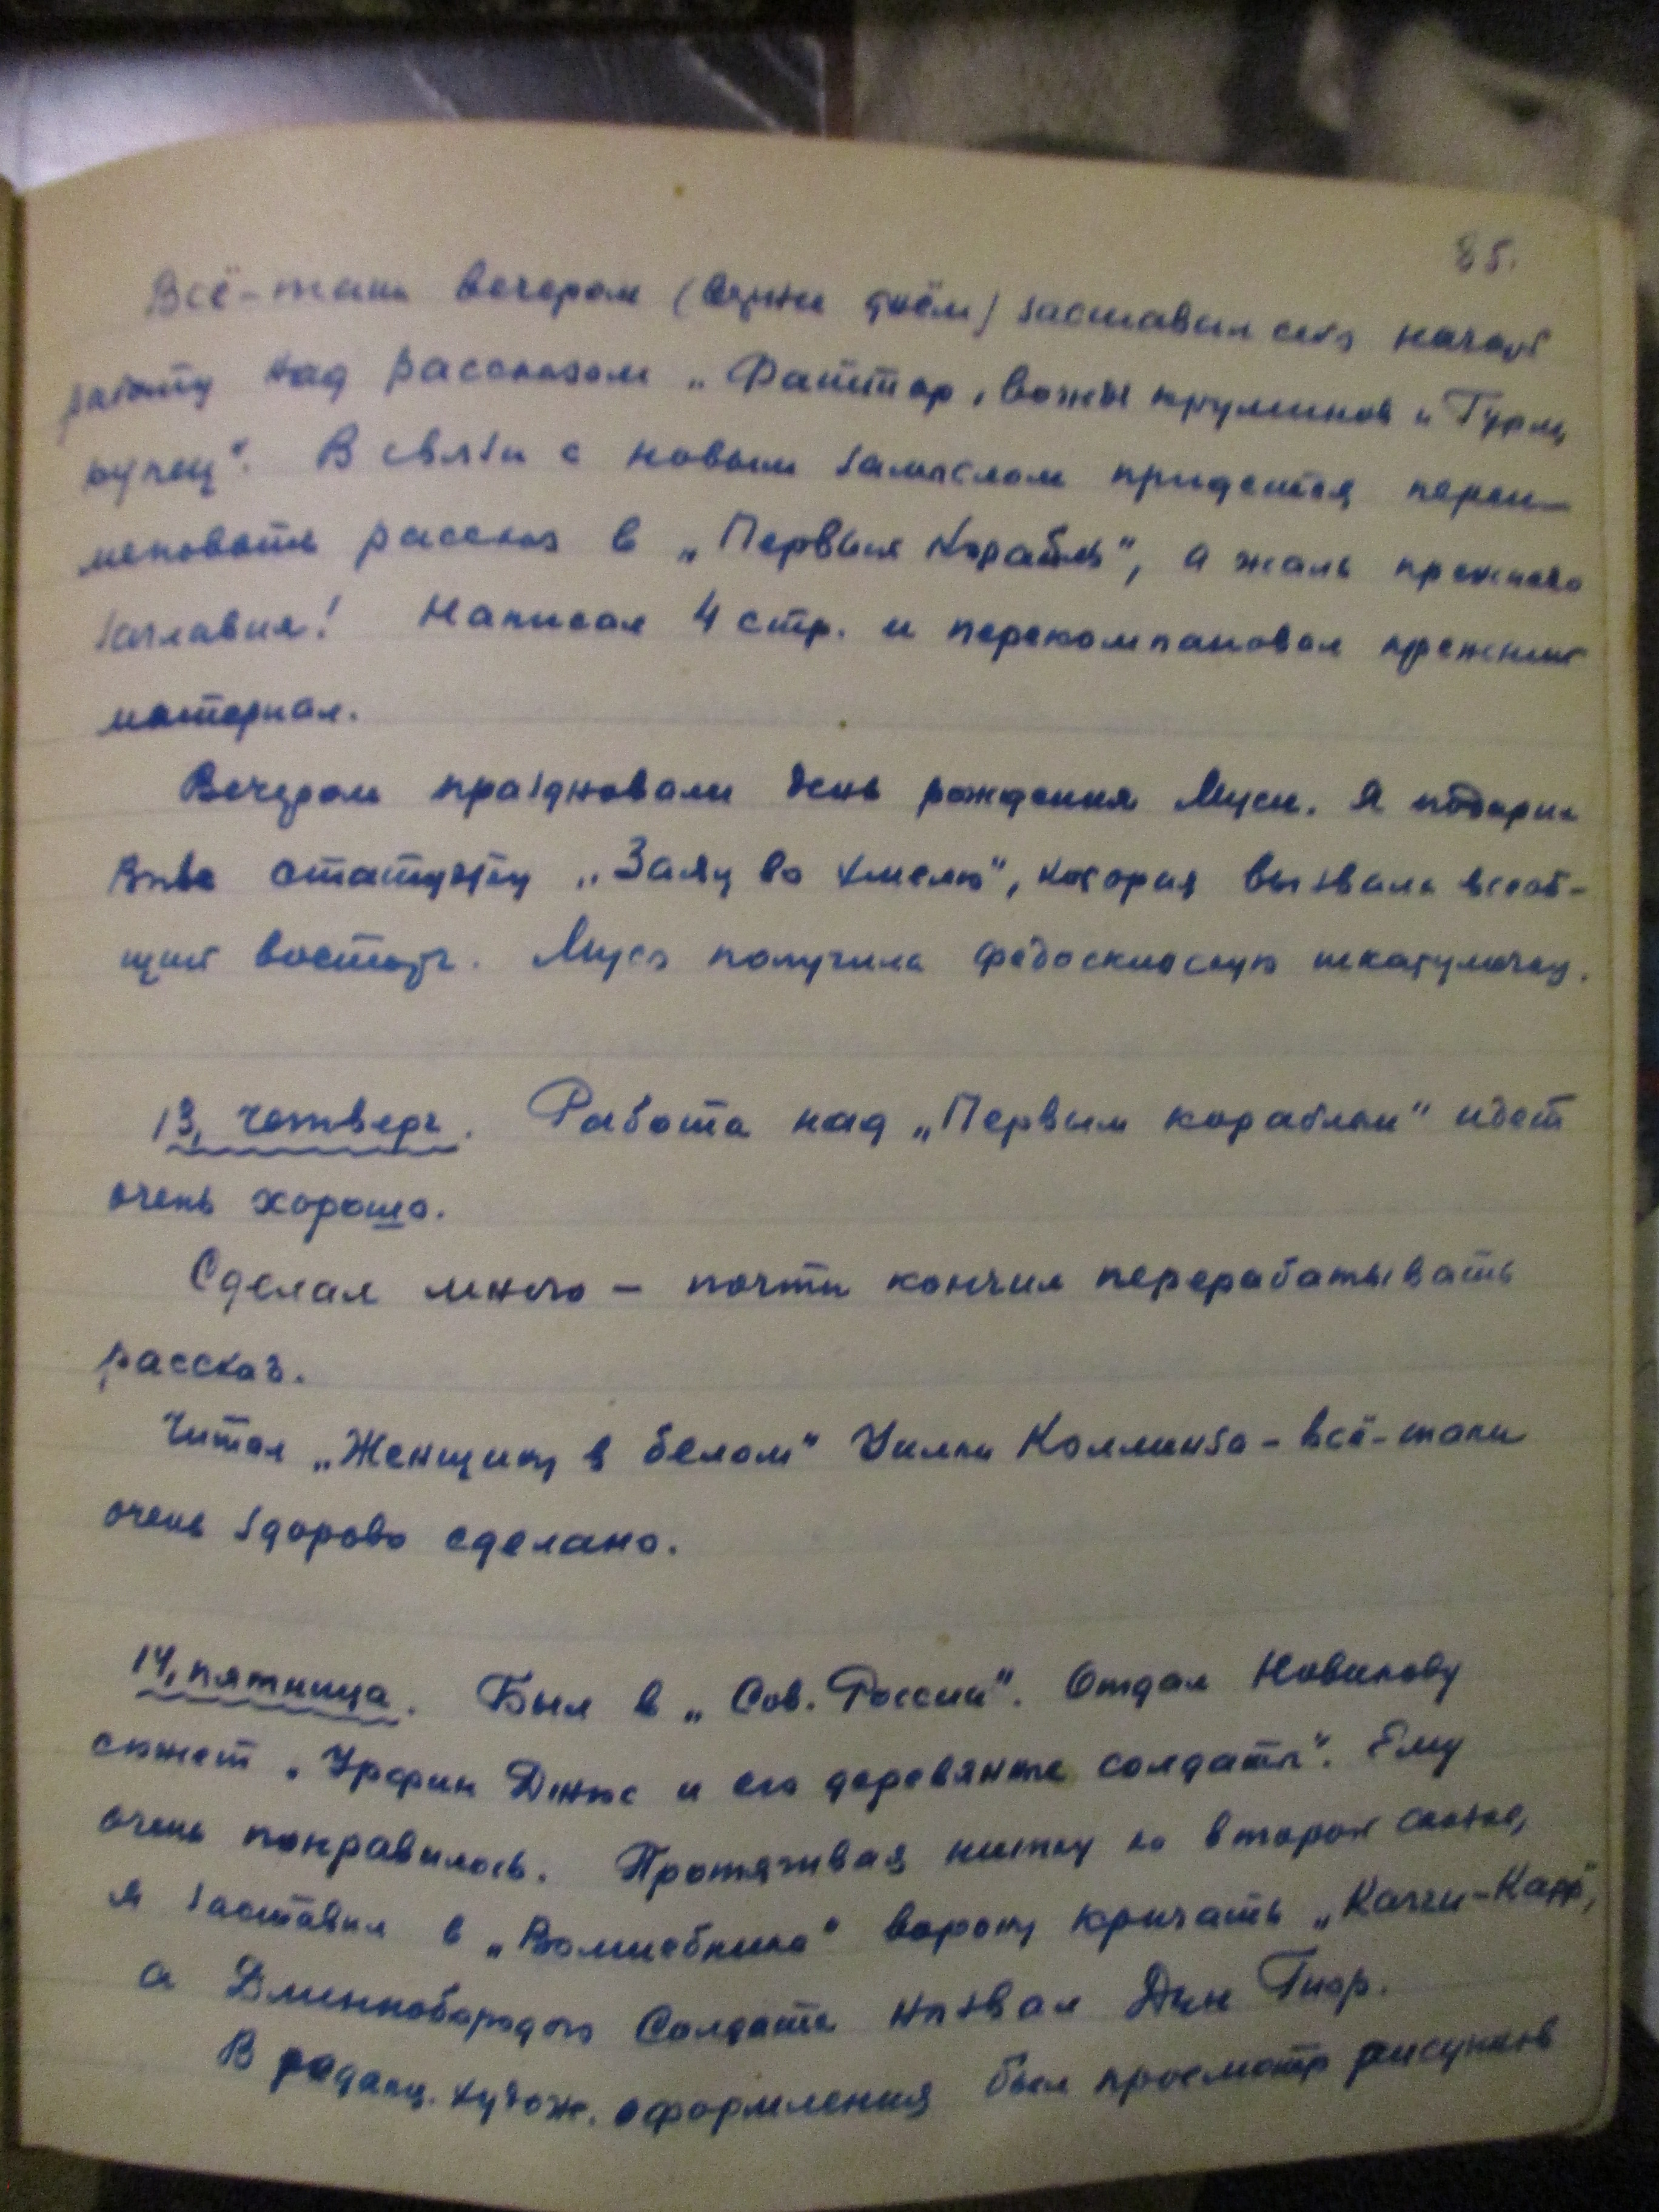 85.
Всё-таки вечером (вернее днём) заставил себя начать
работу над рассказом „Фаттар, вождь и Гурм,
купец". В связи с новым замыслом придется переи-
меновать рассказ в „Первый корабль", а жаль прежнего
заглавия! Написал 4 стр. и перекомпановал прежний
материал.
Вечером праздновали день рождения Муси. Я подарил
Виве статуэтку „Заяц во хмелю", которая вызвала всеоб-
щий восторг. Муся получила федоскинскую шкатулочку.
13, четверг. Работа над „Первым кораблем" идет
очень хорошо.
Сделал много – почти кончил перерабатывать
рассказ.
Читал „Женщину в белом" Уилки Коллинза – всё-таки
очень здорово сделано.
14, пятница. Был в „Сов. России". Отдал Новикову
сюжет „Урфин Джюс и его деревянные солдаты". Ему
очень понравилось. Протягивая нитку ко второй сказке,
я заставил в „Волшебнике" ворону кричать „Кагги-Карр",
а Длиннобородого Солдата назвал Дин Гиор.
В редакц. худож. оформления был просмотр рисунков